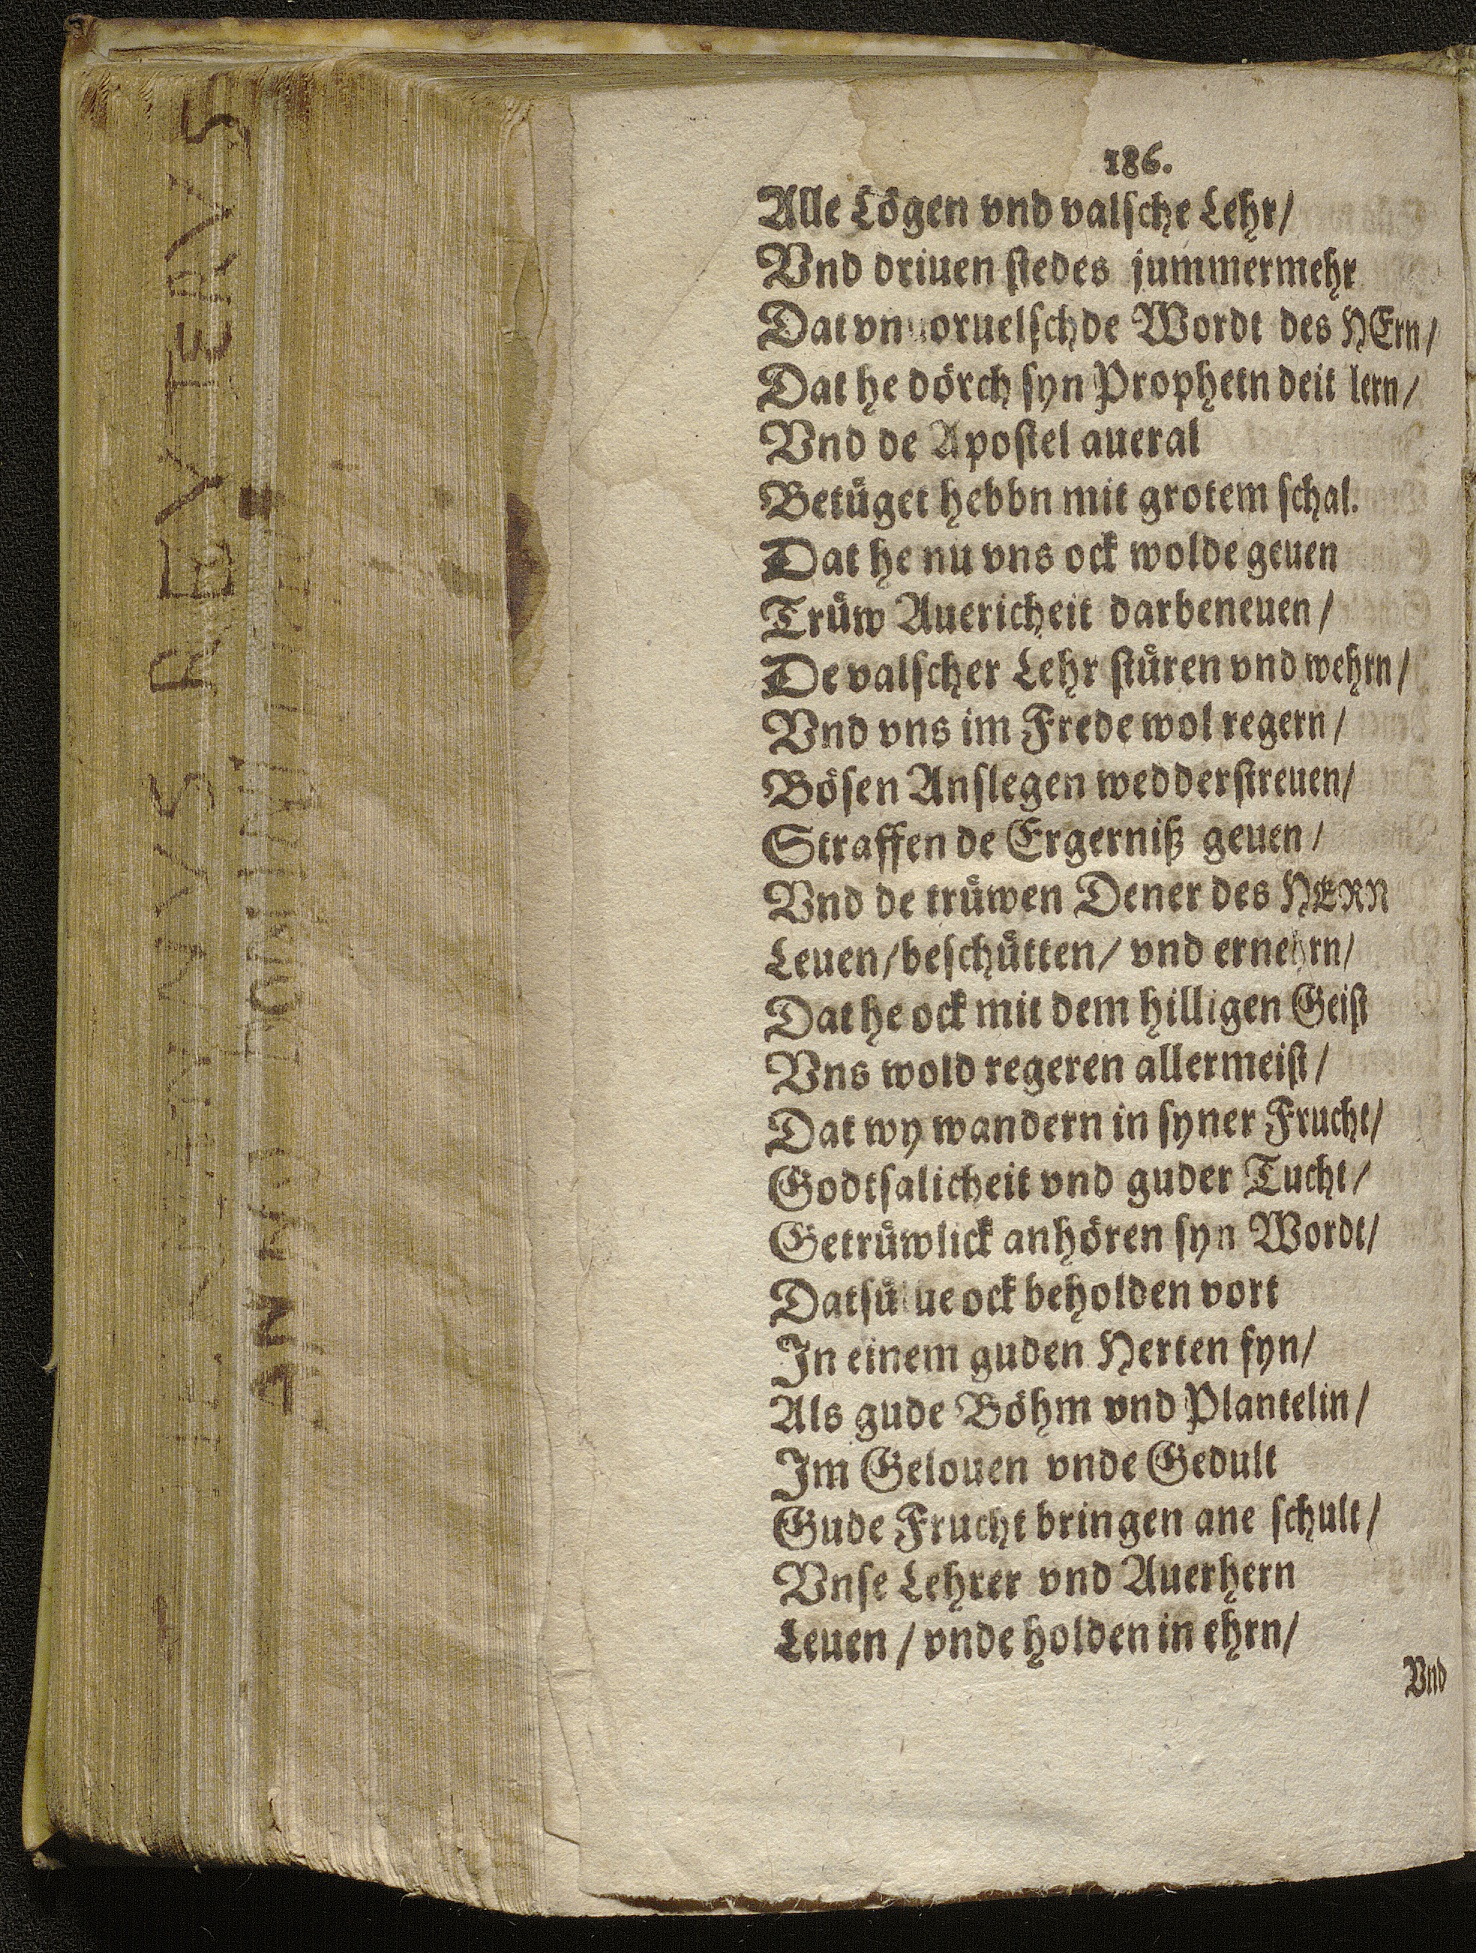 186.
Alle Lögen vnd valsche Lehr/
Vnd driuen stedes jummermehr
Dat vnuoruelschde Wordt des HErn/
Dat he dörch syn Prophetn deit lern/
Vnd de Apostel aueral
Betüget hebbn mit grotem schal.
Dat he nu vns ock wolde geuen
Trüw Auericheit darbeneuen/
De valscher Lehr stüren vnd wehrn/
Vnd vns im Frede wol regern/
Bösen Anslegen wedderstreuen/
Straffen de Ergerniß geuen/
Vnd de trüwen Dener des HERN
Leuen/beschütten/ vnd ernehrn/
Dat he ock mit dem hilligen Geist
Vns wold regeren allermeist/
Dat wy wandern in syner Frucht/
Godtsalicheit vnd guder Tucht/
Getrüwlick anhören syn Wordt/
Datsülue ock beholden vort
In einem guden Herten fyn/
Als gude Böhm vnd Plantelin/
Im Gelouen vnde Gedult
Gude Frucht bringen ane schult/
Vnse Lehrer vnd Auerhern
Leuen / vnde holden in ehrn/
Vnd